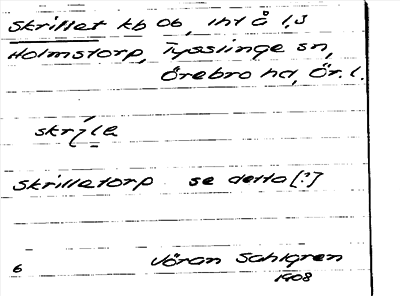 Skrillet kb 06, int å l, s
Holmstorp, Tysslinge sn,
Örebro hd, Ör. l.
skrı̜le
Skrilletorp se detto [?]
Jöran Sahlgren
6 1908